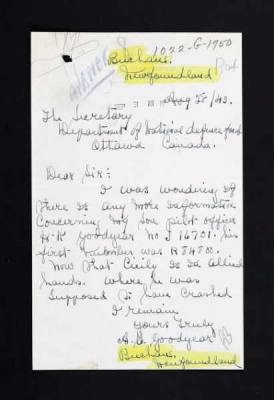 1022-G-1750
Buchans.
Newfoundland
ANSWERED
Aug 28/43.
The Secretary
Department of National defence for
Ottawa Canada.
Dear Sir:
I was wondering if
there is any more information
Concerning my Son pilot officer
H.K. Goodyear No J 16701. his
first number was R84800.
Now that Cicily is in Allied
hands. where he was
Supposed to have Crashed
I remain
Yours truly
A.C. Goodyear
Buchans.
Newfoundland